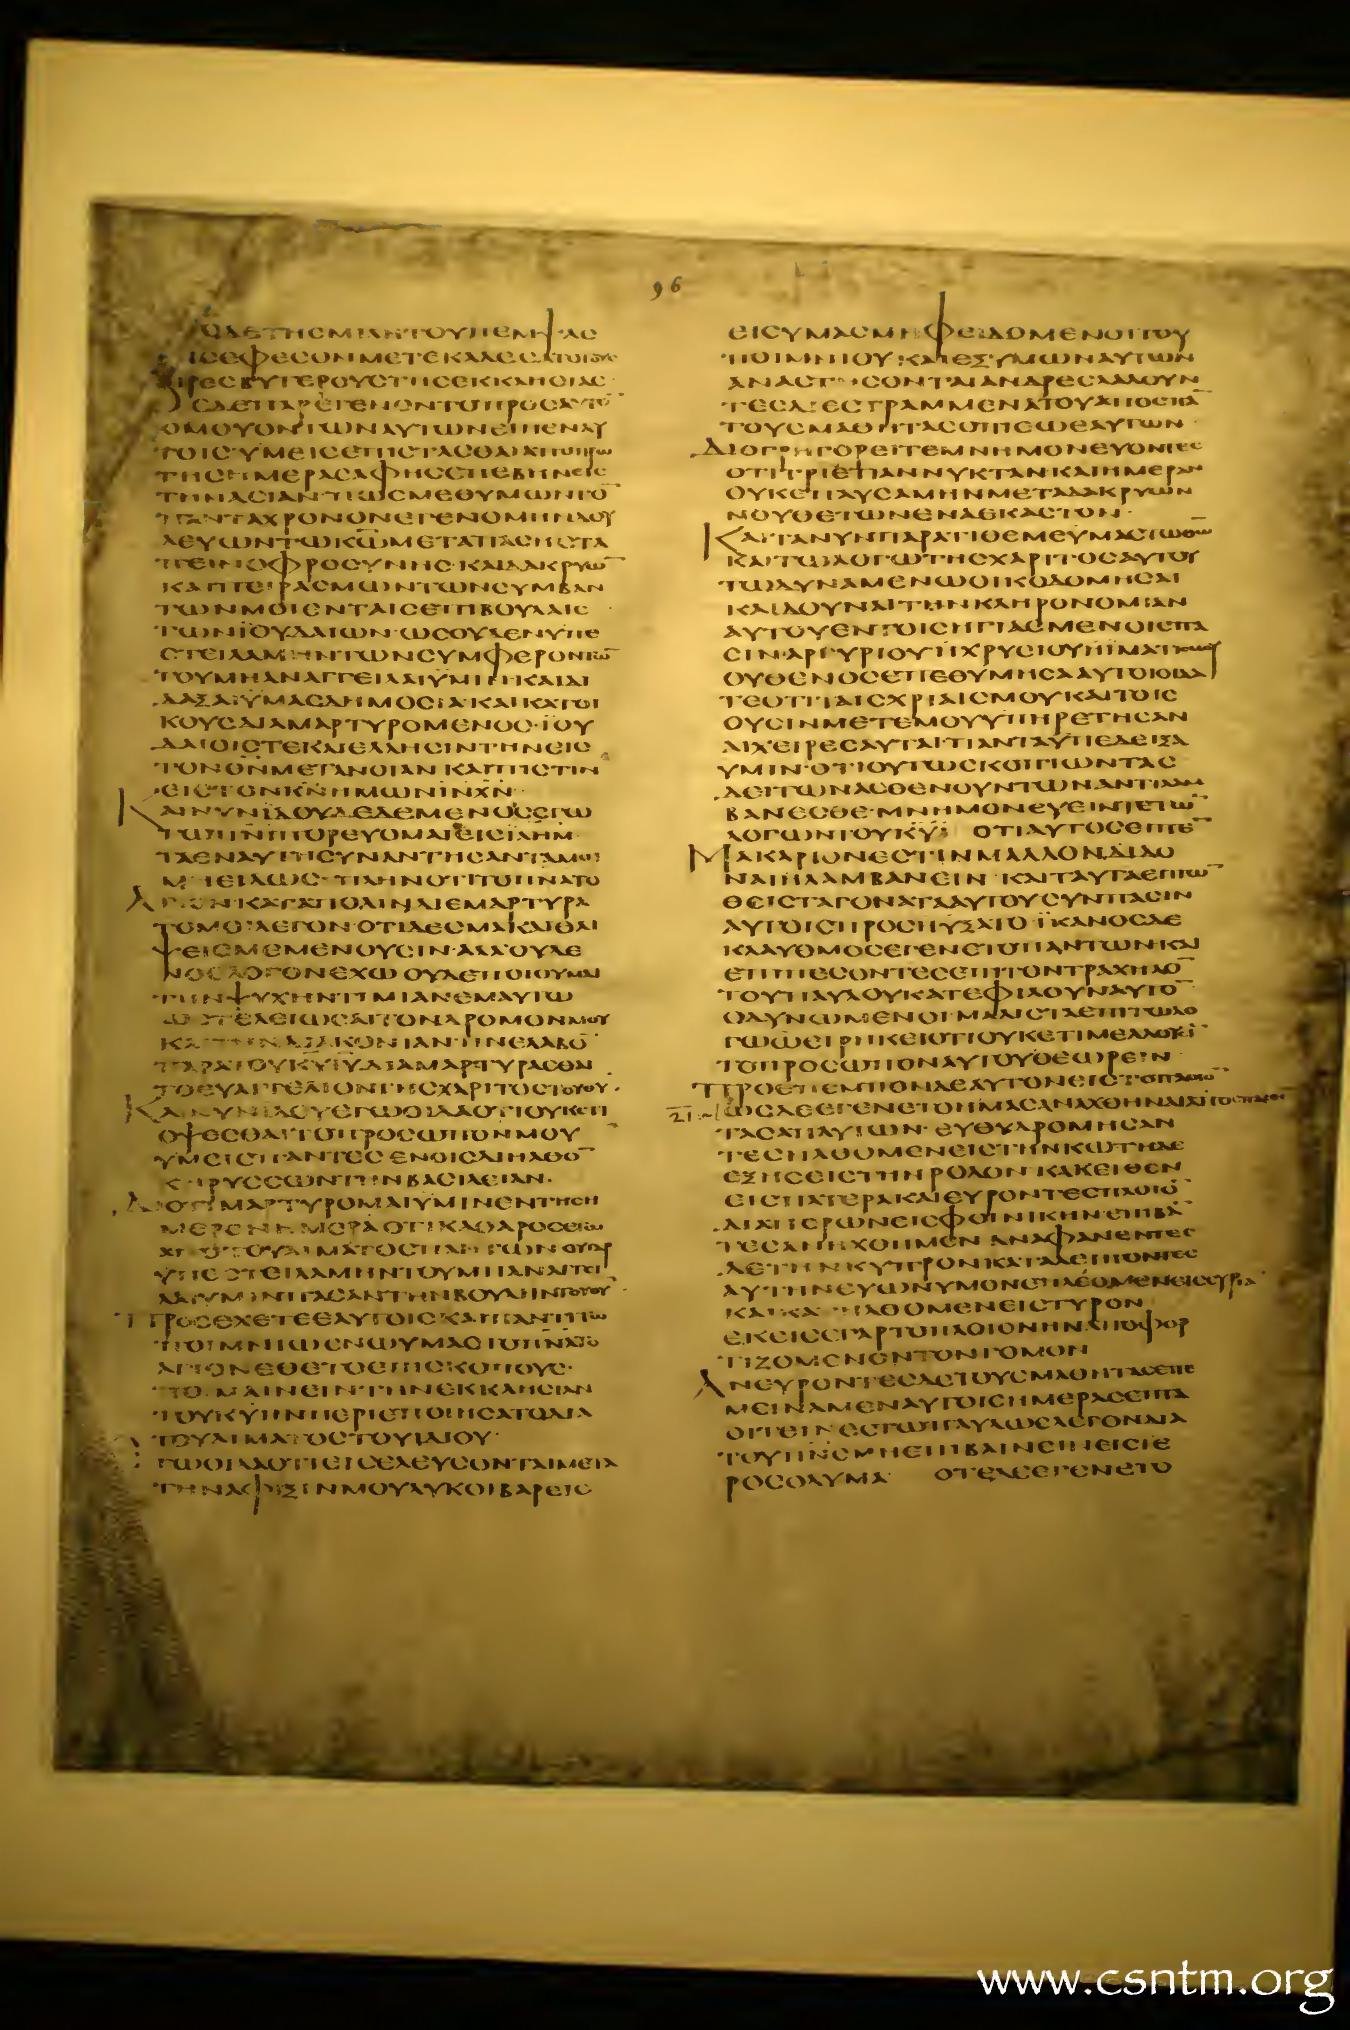 96
ΔΕΤΗΣΜΙΛΗΤΟΥΠΕΜΨΑΣ
ΕΙΣΕΦΕΣΟΝΜΕΤΕΚΑΛΕΣΑΤΟΤΟΥΣ
ΠΡΕΣΒΥΤΕΡΟΥΣΤΗΣΕΚΚΛΗΣΙΑΣ
ΣΔΕΠΑΡΕΓΕΝΟΝΤΟΠΡΟΣΑΥΤΟ̅
ΟΜΟΥΟΝΤΩΝΑΥΤΩΝΕΙΠΕΝΑΥ
ΤΟΙΣΥΜΕΙΣΕΠΙΣΤΑΣΘΑΙΑΠΟΠΡΩ
ΤΗΣΗΜΕΡΑΣΑΦΗΣΕΠΕΒΗΝΕΙΣ
ΤΗΝΑΣΙΑΝΠΩΣΜΕΘΥΜΩΝΤΟ̅
ΠΑΝΤΑΧΡΟΝΟΝΕΓΕΝΟΜΗΝΔΟΥ
ΛΕΥΩΝΤΩΚΩ̅ΜΕΤΑΠΑΣΗΣΤΑ
ΠΕΙΝΟΦΡΟΣΥΝΗΣ·ΚΑΙΔΑΚΡΥΩ̅
ΚΑΙΠΕΙΡΑΣΜΩΝΤΩΝΣΥΜΒΑΝ
ΤΩΝΜΟΙΕΝΤΑΙΣΕΠΙΒΟΥΛΑΙΣ
ΤΩΝΪΟΥΔΑΙΩΝ·ΩΣΟΥΔΕΝΥΠΕ
ΣΤΕΙΛΑΜΗΝΤΩΝΣΥΜΦΕΡΟΝΤΩ̅
ΤΟΥΜΗΑΝΑΓΓΕΙΛΑΙΫΜΙΝΚΑΙΔΙ
ΔΑΞΑΙΫΜΑΣΔΗΜΟΣΙΑ·ΚΑΙΚΑΤΟΙ
ΚΟΥΣΔΙΑΜΑΡΤΥΡΟΜΕΝΟΣ·ΪΟΥ
ΔΑΙΟΙΣΤΕΚΑΙΕΛΛΗΣΙΝΤΗΝΕΙΣ
ΤΟΝΘΝ̅ΜΕΤΑΝΟΙΑΝ·ΚΑΙΠΙΣΤΙΝ
ΕΙΣΤΟΝΚΝ̅ΗΜΩΝΙΝ̅ΧΝ̅·
ΚΑΙΝΥΝΪΔΟΥΔΕΔΕΜΕΝΟΣΕΓΩ
ΤΩΠΝΙ̅ΠΟΡΕΥΟΜΑΙΕΙΣΙΛΗΜ̅
ΤΑΕΝΑΥΤΗΣΥΝΑΝΤΗΣΑΝΤΑΜΟΙ
ΜΗΕΙΔΩΣ·ΠΛΗΝΟΤΙΤΟΠΝΑ̅ΤΟ
ΑΓΙΟΝΚΑΤΑΠΟΛΙΝΔΙΕΜΑΡΤΥΡΑ
ΤΟΜΟΙΛΕΓΟΝ·ΟΤΙΔΕΣΜΑΚΑΙΘΛΙ
ΨΕΙΣΜΕΜΕΝΟΥΣΙΝ·ΑΛΛΟΥΔΕ
ΝΟΣΛΟΓΟΝΕΧΩ·ΟΥΔΕΠΟΙΟΥΜΑΙ
ΤΗΝΨΥΧΗΝΤΙΜΙΑΝΕΜΑΥΤΩ
ΩΣΤΕΛΕΙΩΣΑΙΤΟΝΔΡΟΜΟΝΜΟΥ
ΚΑΙΤΗΝΔΙΑΚΟΝΙΑΝΗΝΕΛΑΒΟ̅
ΠΑΡΑΤΟΥΚΥ̅ΙΥ̅ΔΙΑΜΑΡΤΥΡΑΣΘΑΙ
ΤΟΕΥΑΓΓΕΛΙΟΝΤΗΣΧΑΡΙΤΟΣΤΟΥΘΥ̅·
ΚΑΙΝΥΝΪΔΟΥΕΓΩΟΙΔΑΟΤΙΟΥΚΕΤΙ
ΟΨΕΣΘΑΙΤΟΠΡΟΣΩΠΟΝΜΟΥ
ΥΜΕΙΣΠΑΝΤΕΣΕΝΟΙΣΔΙΗΛΘΟ̅
ΚΗΡΥΣΣΩΝΤΗΝΒΑΣΙΛΕΙΑΝ·
ΔΙΟΤΙΜΑΡΤΥΡΟΜΑΙΫΜΙΝΕΝΤΗΣΗ
ΜΕΡΟΝΗΜΕΡΑΟΤΙΚΑΘΑΡΟΣΕΙΜΙ
ΑΠΟΤΟΥΑΙΜΑΤΟΣΠΑΝΤΩΝΟΥΓΑΡ
ΥΠΕΣΤΕΙΛΑΜΗΝΤΟΥΜΗΑΝΑΓΓΕΙ
ΛΑΙΫΜΙΝΠΑΣΑΝΤΗΝΒΟΥΛΗΝΤΟΥΘΥ̅
ΠΡΟΣΕΧΕΤΕΕΑΥΤΟΙΣΚΑΙΠΑΝΤΙΤΩ
ΠΟΙΜΝΙΩΕΝΩΥΜΑΣΤΟΠΝΑ̅ΤΟ
ΑΓΙΟΝΕΘΕΤΟΕΠΙΣΚΟΠΟΥΣ·
ΠΟΙΜΑΙΝΕΙΝΤΗΝΕΚΚΛΗΣΙΑΝ
ΤΟΥΚΥ̅ΗΝΠΕΡΙΕΠΟΙΗΣΑΤΟΔΙΑ
ΤΟΥΑΙΜΑΤΟΣΤΟΥΙΔΙΟΥ·
ΓΩΟΙΔΑΟΤΙΕΙΣΕΛΕΥΣΟΝΤΑΙΜΕΤΑ
ΤΗΝΑΦΙΞΙΝΜΟΥΛΥΚΟΙΒΑΡΕΙΣ
ΕΙΣΥΜΑΣΜΗΦΕΙΔΟΜΕΝΟΙΤΟΥ
ΠΟΙΜΝΙΟΥ·ΚΑΙΕΞΥΜΩΝΑΥΤΩΝ
ΑΝΑΣΤΗΣΟΝΤΑΙΑΝΔΡΕΣΛΑΛΟΥΝ
ΤΕΣΔΙΕΣΤΡΑΜΜΕΝΑΤΟΥΑΠΟΣΠΑ̅
ΤΟΥΣΜΑΘΗΤΑΣΟΠΙΣΩΕΑΥΤΩΝ
ΔΙΟΓΡΗΓΟΡΕΙΤΕΜΝΗΜΟΝΕΥΟΝΤΕΣ
ΟΤΙΤΡΙΕΤΙΑΝΝΥΚΤΑΝΚΑΙΗΜΕΡΑΝ
ΟΥΚΕΠΑΥΣΑΜΗΝΜΕΤΑΔΑΚΡΥΩΝ
ΝΟΥΘΕΤΩΝΕΝΑΕΚΑΣΤΟΝ·
ΚΑΙΤΑΝΥΝΠΑΡΑΤΙΘΕΜΕΥΜΑΣΤΩΘΩ̅
ΚΑΙΤΩΛΟΓΩΤΗΣΧΑΡΙΤΟΣΑΥΤΟΥ
ΤΩΔΥΝΑΜΕΝΩΟΙΚΟΔΟΜΗΣΑΙ
ΚΑΙΔΟΥΝΑΙΤΗΝΚΛΗΡΟΝΟΜΙΑΝ
ΑΥΤΟΥΕΝΤΟΙΣΗΓΙΑΣΜΕΝΟΙΣΠΑ
ΣΙΝ·ΑΡΓΥΡΙΟΥΗΧΡΥΣΙΟΥΗΪΜΑΤΙΣΜΟΥ
ΟΥΘΕΝΟΣΕΠΕΘΥΜΗΣΑΑΥΤΟΙΟΙΔΑ
ΤΕΟΤΙΤΑΙΣΧΡΙΑΙΣΜΟΥΚΑΙΤΟΙΣ
ΟΥΣΙΝΜΕΤΕΜΟΥΥΠΗΡΕΤΗΣΑΝ
ΑΙΧΕΙΡΕΣΑΥΤΑΙΠΑΝΤΑΫΠΕΔΕΙΞΑ
ΥΜΙΝ·ΟΤΙΟΥΤΩΣΚΟΠΙΩΝΤΑΣ
ΔΕΙΤΩΝΑΣΘΕΝΟΥΝΤΩΝΑΝΤΙΛΑΜ
ΒΑΝΕΣΘΕ·ΜΝΗΜΟΝΕΥΕΙΝΤΕΤΩ̅
ΛΟΓΩΝΤΟΥΚΥ̅· ΟΤΙΑΥΤΟΣΕΙΠΕ̅
ΜΑΚΑΡΙΟΝΕΣΤΙΝΜΑΛΛΟΝΔΙΔΟ
ΝΑΙΗΛΑΜΒΑΝΕΙΝ·ΚΑΙΤΑΥΤΑΕΙΠΩ̅
ΘΕΙΣΤΑΓΟΝΑΤΑΑΥΤΟΥΣΥΝΠΑΣΙΝ
ΑΥΤΟΙΣΠΡΟΣΗΥΞΑΤΟ·ΪΚΑΝΟΣΔΕ
ΚΛΑΥΘΜΟΣΕΓΕΝΕΤΟΠΑΝΤΩΝ·ΚΑΙ
ΕΠΙΠΕΣΟΝΤΕΣΕΠΙΤΟΝΤΡΑΧΗΛΟ̅
ΤΟΥΠΑΥΛΟΥΚΑΤΕΦΙΛΟΥΝΑΥΤΟ̅
ΟΔΥΝΩΜΕΝΟΙ·ΜΑΛΙΣΤΑΕΠΙΤΩΛΟ
ΓΩΩΕΙΡΗΚΕΙΟΤΙΟΥΚΕΤΙΜΕΛΛΟΥΣΙ̅
ΤΟΠΡΟΣΩΠΟΝΑΥΤΟΥΘΕΩΡΕΙΝ
ΠΡΟΕΠΕΜΠΟΝΔΕΑΥΤΟΝΕΙΣΤΟΠΛΟΙΟ̅
21 ΩΣΔΕΕΓΕΝΕΤΟΗΜΑΣΑΝΑΧΘΗΝΑΙΑΠΟΣΠΑΣΘΕΝ
ΤΑΣΑΠΑΥΤΩΝ·ΕΥΘΥΔΡΟΜΗΣΑΝ
ΤΕΣΗΛΘΟΜΕΝΕΙΣΤΗΝΚΩΤΗΔΕ
ΕΞΗΣΕΙΣΤΗΝΡΟΔΟΝΚΑΚΕΙΘΕΝ
ΕΙΣΠΑΤΕΡΑΚΑΙΕΥΡΟΝΤΕΣΠΛΟΙΟ̅
ΔΙΑΠΕΡΩΝΕΙΣΦΟΙΝΙΚΗΝ·ΕΠΙΒΑ̅
ΤΕΣΑΝΗΧΘΗΜΕΝ·ΑΝΑΦΑΝΕΝΤΕΣ
ΔΕΤΗΝΚΥΠΡΟΝΚΑΙΚΑΤΑΛΕΙΠΟΝΤΕΣ
ΑΥΤΗΝΕΥΩΝΥΜΟΝΕΠΛΕΟΜΕΝΕΙΣΣΥΡΙΑ̅
ΚΑΙΚΑΤΗΛΘΟΜΕΝΕΙΣΤΥΡΟΝ
ΕΚΕΙΣΕΓΑΡΤΟΠΛΟΙΟΝΗΝΑΠΟΦΟΡ
ΤΙΖΟΜΕΝΟΝΤΟΝΓΟΜΟΝ
ΑΝΕΥΡΟΝΤΕΣΔΕΤΟΥΣΜΑΘΗΤΑΣΕΠΕ
ΜΕΙΝΑΜΕΝΑΥΤΟΙΣΗΜΕΡΑΣΕΠΤΑ
ΟΙΤΕΙΝΕΣΤΩΠΑΥΛΩΕΛΕΓΟΝΔΙΑ
ΤΟΥΠΝΣ̅ΜΗΕΠΙΒΑΙΝΕΙΝΕΙΣΙΕ
ΡΟΣΟΛΥΜΑ ΟΤΕΔΕΕΓΕΝΕΤΟ
www.csntm.org